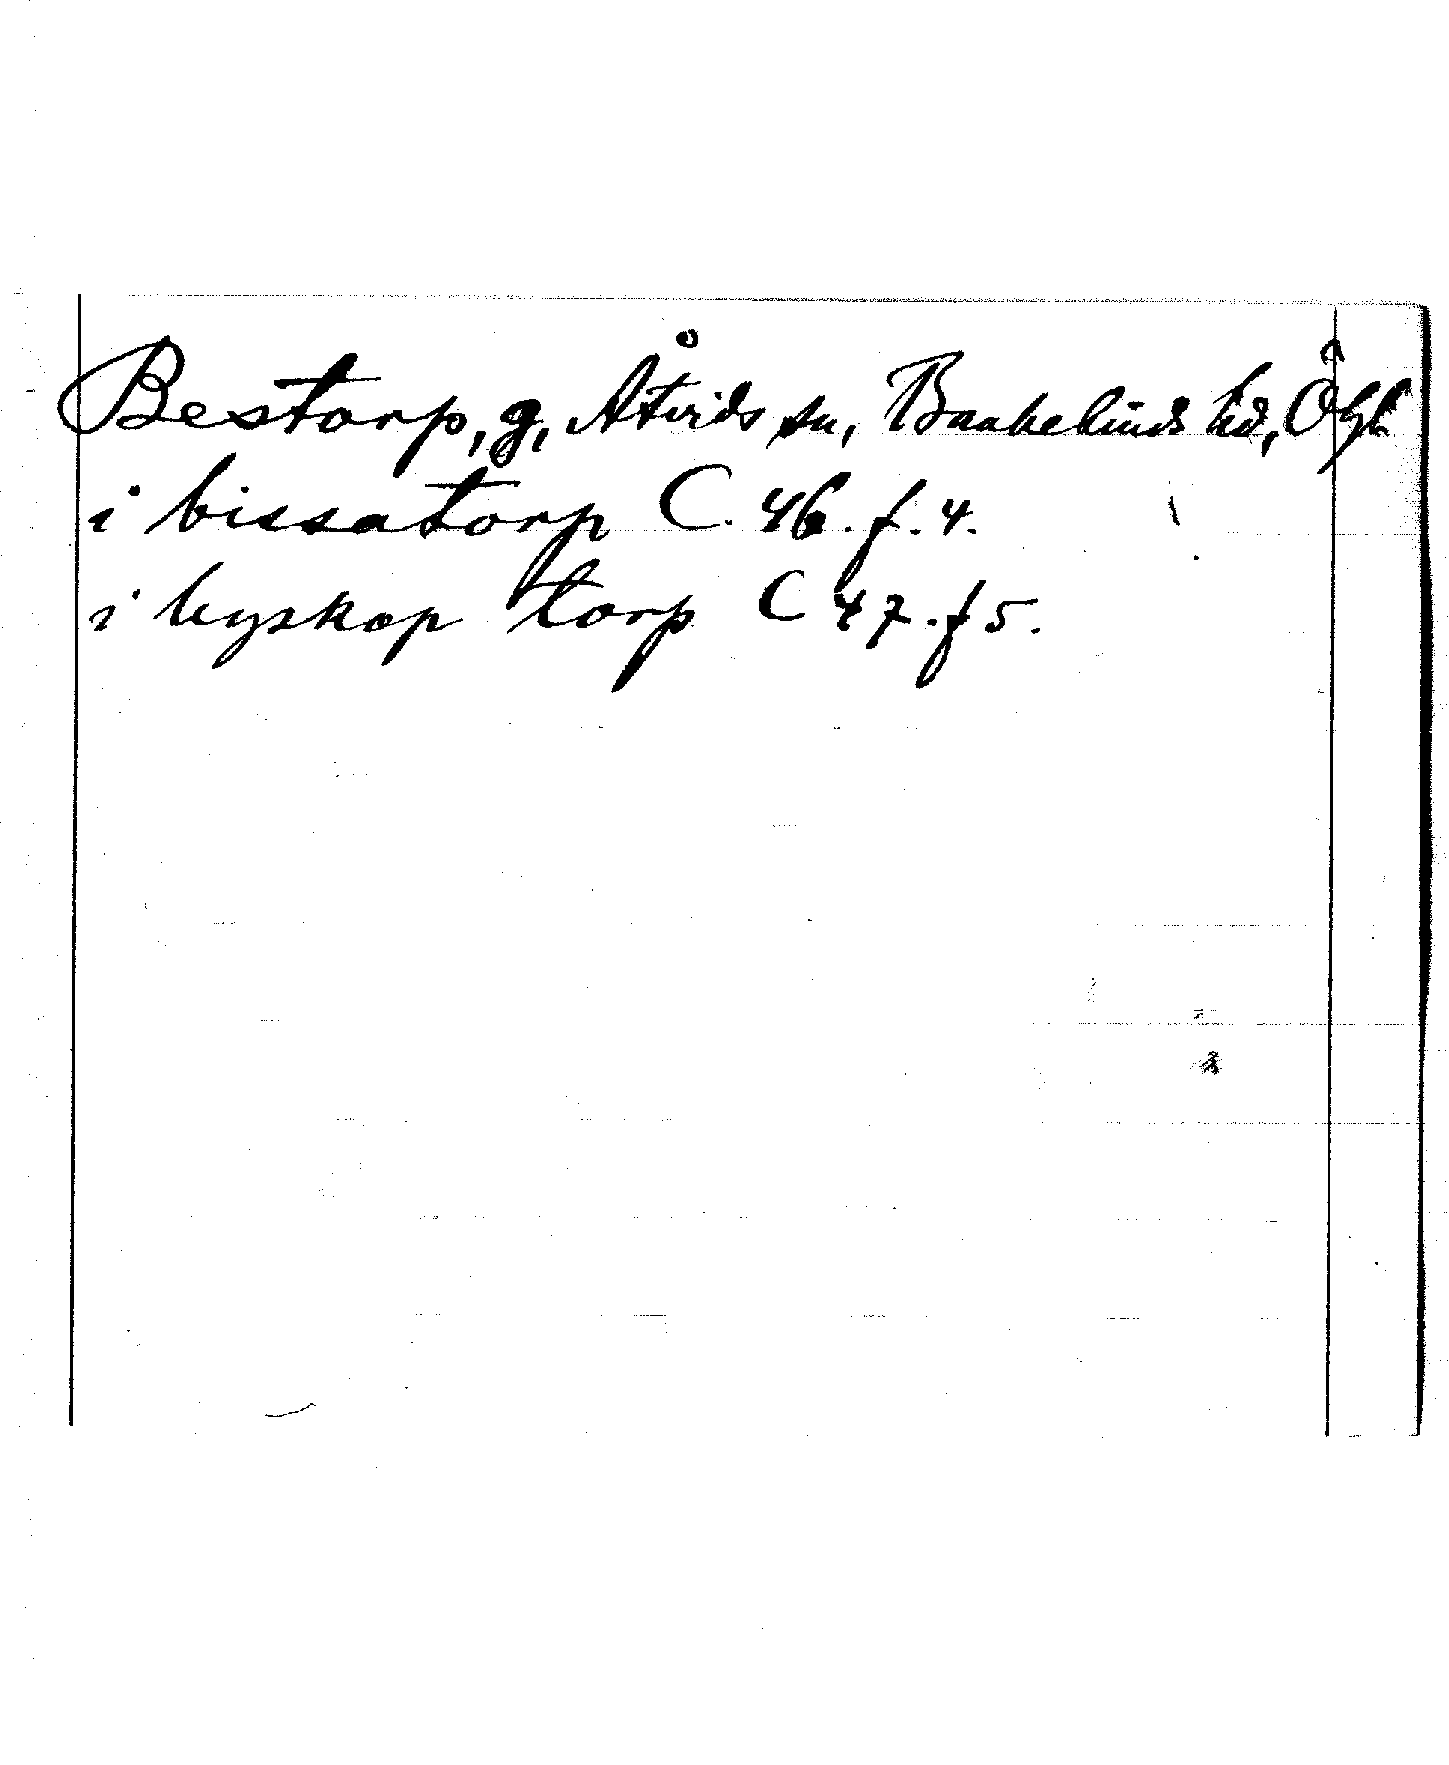 Bestorp, g, Åtvids sn, Baakelinds hd, Ögl
i bissatorp C. 46. f. 4.
i byskop torp C 47. f 5.